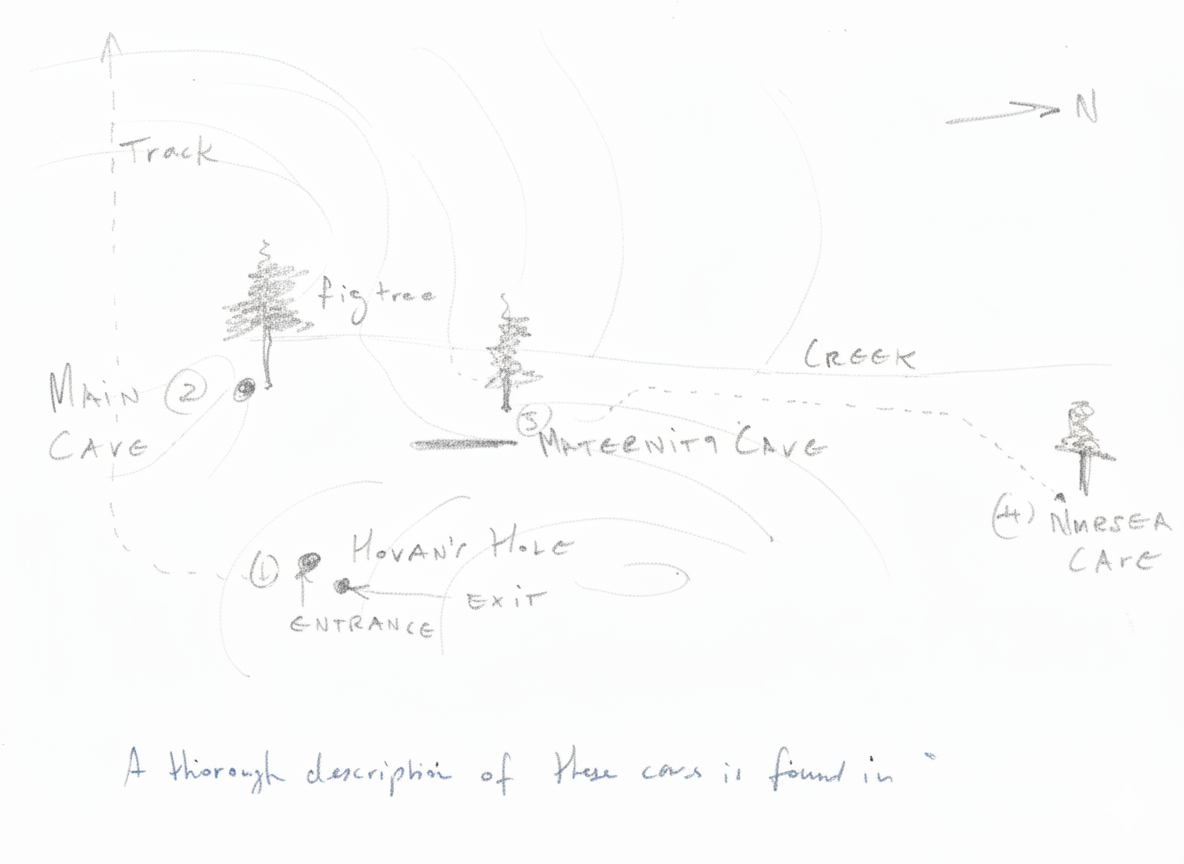 N
Track
fig tree
CREEK
MAIN ②
CAVE
③
MATERNITY CAVE
④ NURSEA
CAVE
① HOVAN'S HOLE
EXIT
ENTRANCE
A thorough description of these caves is found in "